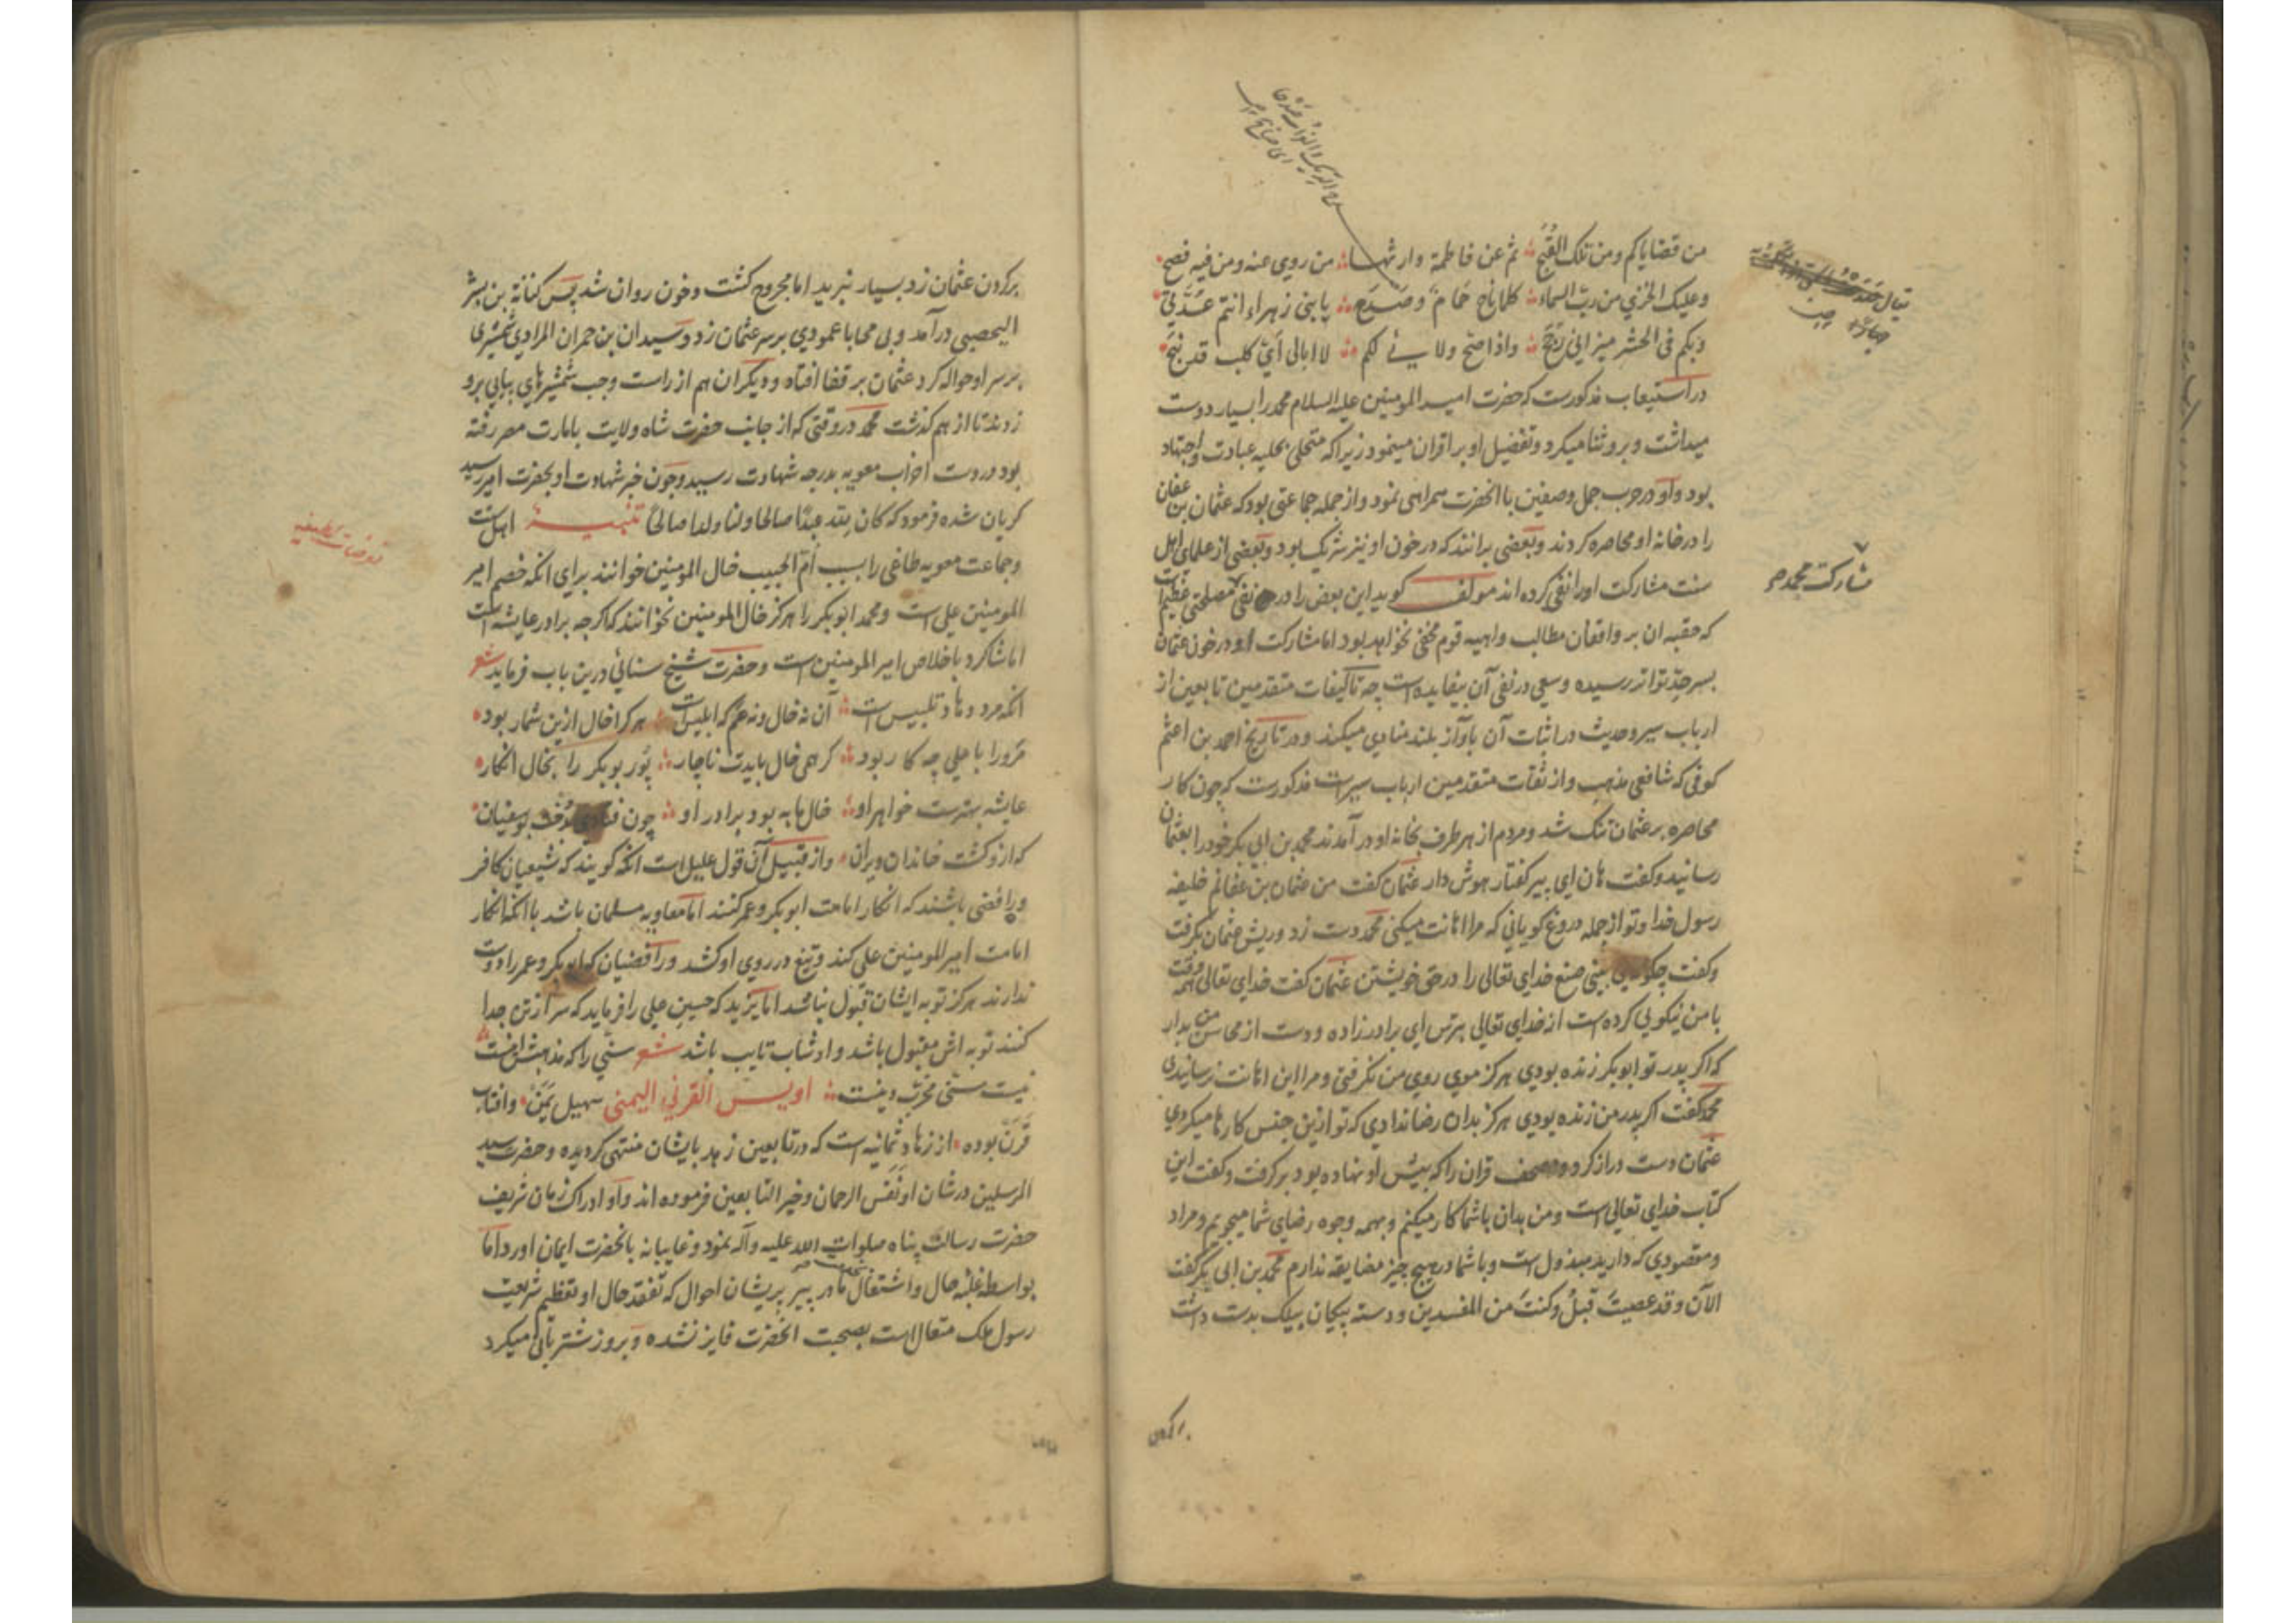 من قضایاکم ومن تلک القبح ثم عن فاطمة وارثها من روی عنه ومن فیه فصح
وعلیک الخزی من رب السماء کلما ناح حمام وصدح یا بنی زهراء انتم عدتی
وبکم فی الحشر میزانی رجح واذا صح ولایی لکم لا ابالی ای کلب قد نبح
در استیعاب مذکورست که حضرت امیر المومنین علیه السلام محمد را بسیار دوست
میداشت و برو ثنا میکرد وتفضیل او بر اقران مینمود زیرا که متحلی بحلیه عبادت واجتهاد
بود واو در حرب جمل وصفین با آنحضرت همراهی نمود واز جمله جماعتی بود که عثمان بن عفان
را در خانه او محاصره کردند وبعضی برانند که در خون او نیز شریک بود وبعضی از علمای اهل
سنت مشارکت او را نفی کرده اند مولف کوید این بعض را در نفی مصلحتی عظیم است
که حقیه ان بر واقفان مطالب واهیه قوم مخفی نخواهد بود اما مشارکت او در خون عثمان
بسر حد تواتر رسیده وسعی در نفی آن بیفایده است چه تالیفات متقدمین تابعین از
ارباب سیر وحدیث در اثبات آن بآواز بلند منادی میکند ودر تاریخ احمد بن اعثم
کوفی که شافعی مذهب واز ثقات متقدمین ارباب سیرست مذکورست که چون کار
محاصره بر عثمان تنک شد ومردم از هر طرف بخانه او در آمدند محمد بن ابی بکر خود را بعثمان
رسانید وکفت هان ای پیر کفتار هوش دار عثمان کفت من عثمان بن عفانم خلیفه
رسول خدا وتو از جمله دروغ کویانی که مرا اهانت میکنی محمد دست زد وریش عثمان بکرفت
وکفت چکونه می بینی صنع خدای تعالی را در حق خویشتن عثمان کفت خدای تعالی همه وقت
با من نیکویی کرده است از خدای تعالی بترس ای برادر زاده ودست از محاسن من بدار
که اکر پدر تو ابوبکر زنده بودی هرکز موی روی من نکرفتی ومرا این اهانت نرسانیدی
محمد کفت اکر پدر من زنده بودی هرکز بدان رضا ندادی که تو ازین جنس کارها میکردی
عثمان دست دراز کرد ومصحف قران را که پیش او نهاده بود بر کرفت وکفت این
کتاب خدای تعالی است ومن بدان باشما کار میکنم وبهمه وجوه رضای شما میجویم ومراد
ومقصودی که دارید مبذول است وبا شما در هیچ چیز مضایقه ندارم محمد بن ابی بکر کفت
الآن وقد عصیت قبل وکنت من المفسدین ودسته پیکان بیلک بدست داشت
مشارکت محمد
بر کردن
بر کردن عثمان زد بسیار نبرید اما مجروح کشت وخون روان شد پس کنانة بن بشر
الیحصبی درآمد وبی محابا عمودی بر سر عثمان زد وسیدان بن حمران المرادی شمشیری
بر سر او حواله کرد عثمان بر قفا افتاد ودیکران هم از راست وچپ شمشیرهای پیاپی برو
زدند تا از هم کذشت محمد در وقتی که از جانب حضرت شاه ولایت بامارت مصر رفته
بود در دست احزاب معویه بدرجه شهادت رسید وچون خبر شهادت او بحضرت امیر رسید
کریان شده فرمود که کان لله عبدا صالحا ولنا ولدا صالحا تنبیه اهل سنت
وجماعت معویه طاغی را بسبب ام الحبیب خال المومنین خوانند برای انکه خصم امیر
المومنین علی است ومحمد ابوبکر را هرکز خال المومنین نخوانند که اکرچه برادر عایشه است
اما شاکرد باخلاص امیر المومنین است وحضرت شیخ سنائی درین باب فرماید شعر
انکه مردود وتلبیس است آن نه خال ونه عم که ابلیس است هر کرا خال ازین شمار بود
مرورا با علی چه کار بود کر همی خال بایدت ناچار پور بوبکر را بخال انکار
عایشه بهترست خواهر او خال ما به بود برادر او چون بوسفیان
که ازو کشت خاندان ویران واز قبیل آن قول علیل است انکه کویند که شیعیان کافر
ورافضی باشند که انکار امامت ابوبکر وعمر کنند اما معاویه مسلمان باشد با انکه انکار
امامت امیر المومنین علی کند وتیغ در روی او کشد ورافضیان که ابوبکر وعمر را دوست
ندارند هرکز توبه ایشان قبول نباشد اما یزید که حسین علی را فرماید که سر از تن جدا
کنند توبه اش مقبول باشد واو شاب تایب باشد شعر سنی را که مذهبش اینست
نیست سنی مخرب دینست اویس القرنی الیمنی سهیل یمن وافتاب
قرن بوده از زهاد ثمانیه است که در تابعین زهد بایشان منتهی کردیده وحضرت سید
المرسلین در شان او نفس الرحمان وخیر التابعین فرموده اند واو ادراک زمان شریف
حضرت رسالت پناه صلوات الله علیه وآله نمود وغایبانه بانحضرت ایمان اورد اما
بواسطه غلبه حال واشتغال مادر پیر پریشان احوال که تفقد حال او تعظیم شریعت
رسول ملک متعال است بصحبت انحضرت فایز نشده وبروز شتربانی میکرد